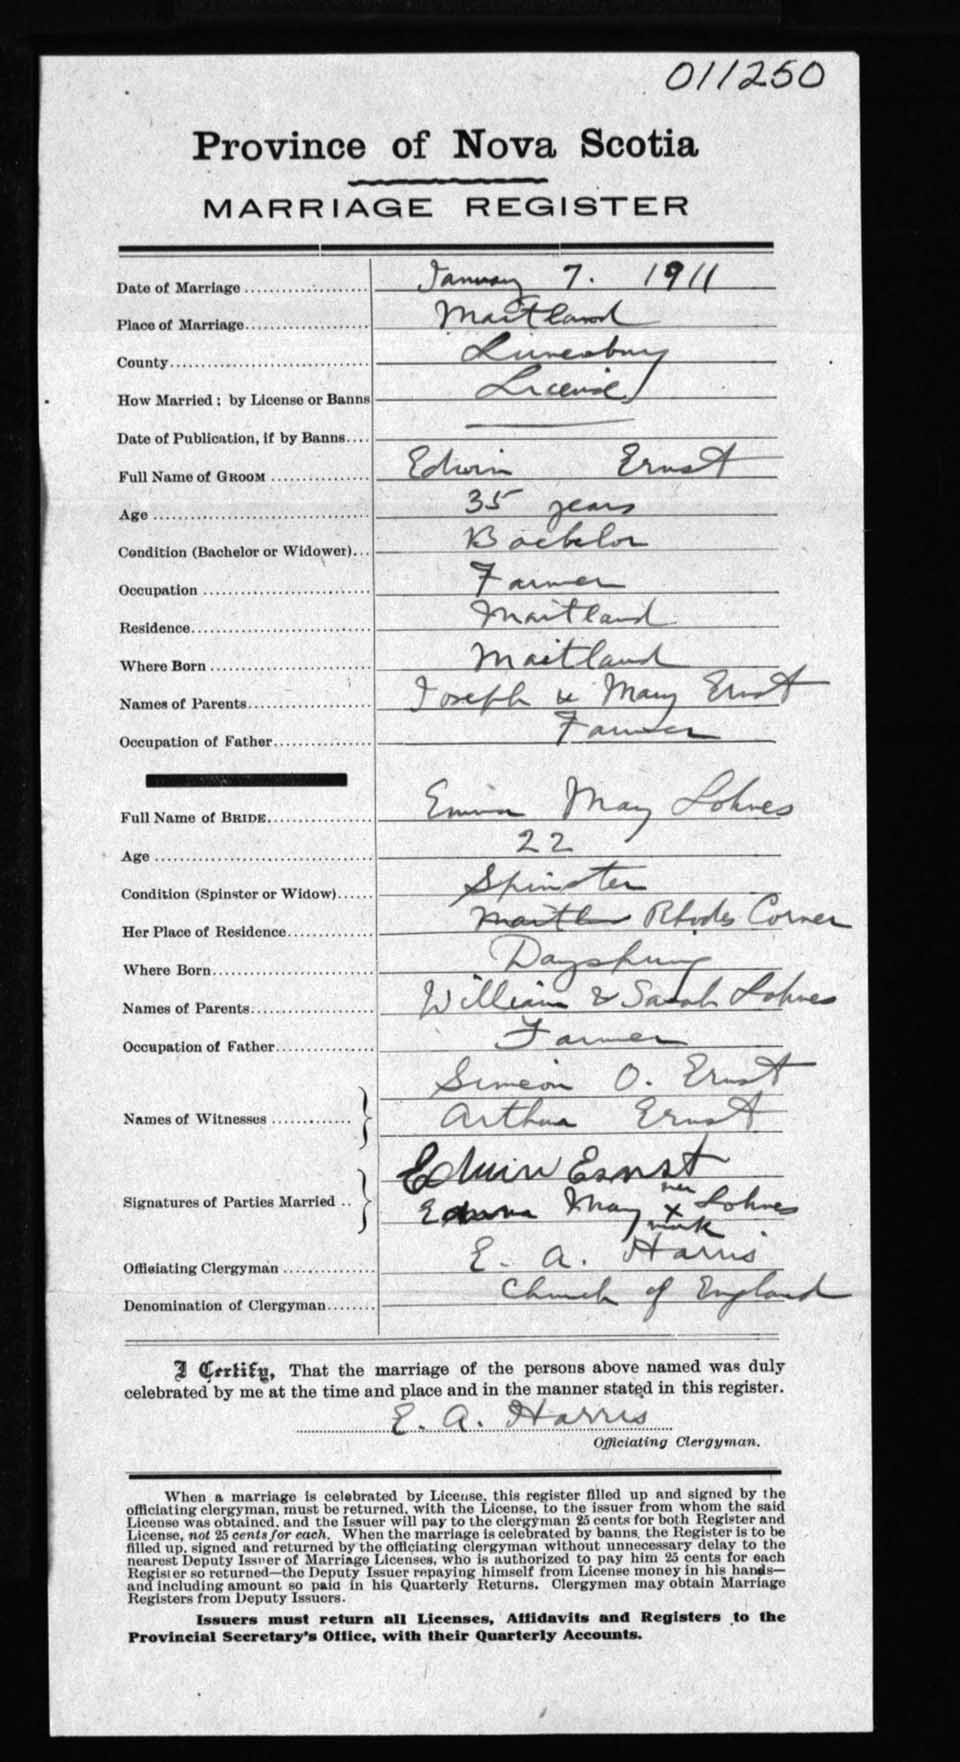 011250
Province of Nova Scotia
MARRIAGE REGISTER
Date of Marriage .................... January 7. 1911
Place of Marriage.................... Maitland
County................................ Lunenburg
How Married: by License or Banns License
Date of Publication, if by Banns....
Full Name of GROOM ................ Edwin Ernst
Age .................................. 35 years
Condition (Bachelor or Widower)... Bachelor
Occupation ........................... Farmer
Residence............................. Maitland
Where Born .......................... Maitland
Names of Parents.................... Joseph & Mary Ernst
Occupation of Father................ Farmer
Full Name of BRIDE................. Emma May Lohnes
Age .................................. 22
Condition (Spinster or Widow)...... Spinster
Her Place of Residence.............. Rhodes Corner
Where Born.......................... Dayspring
Names of Parents.................... William & Sarah Lohnes
Occupation of Father................ Farmer
Simeon O. Ernst
Names of Witnesses ............ Arthur Ernst
Edwin Ernst
Signatures of Parties Married .. May her Lohnes
x
mark
Officiating Clergyman ............... E. A. Harris
Denomination of Clergyman........ Church of England
I Certify, That the marriage of the persons above named was duly
celebrated by me at the time and place and in the manner stated in this register.
E. A. Harris
Officiating Clergyman.
When a marriage is celebrated by License, this register filled up and signed by the
officiating clergyman, must be returned, with the License, to the issuer from whom the said
License was obtained, and the Issuer will pay to the clergyman 25 cents for both Register and
License, not 25 cents for each. When the marriage is celebrated by banns, the Register is to be
filled up, signed and returned by the officiating clergyman without unnecessary delay to the
nearest Deputy Issuer of Marriage Licenses, who is authorized to pay him 25 cents for each
Register so returned—the Deputy Issuer repaying himself from License money in his hands—
and including amount so paid in his Quarterly Returns. Clergymen may obtain Marriage
Registers from Deputy Issuers.
Issuers must return all Licenses, Affidavits and Registers to the
Provincial Secretary's Office, with their Quarterly Accounts.